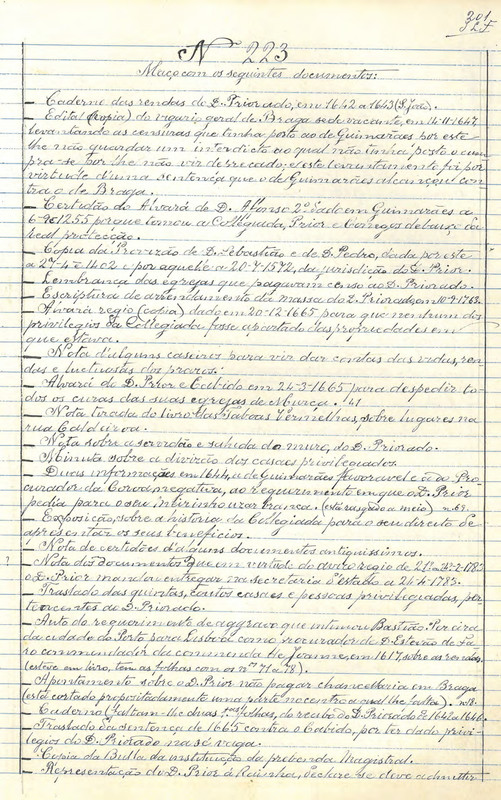 201
Nº 223
Maço com os seguintes documentos:
_ Caderno das rendas do D. Priorado, em 1642 a 1643 (S. João).
_ Edital (copia) do vigario geral de Braga sede vacante, em 14-11-1647
levantando as censuras que tinha posto ao de Guimarães por este
lhe não guardar um interdicto ao qual não tinha posto o cum
pra-se por lhe não vir deprecado; e este levantamento foi por
virtude d'uma sentença que o de Guimarães alcançou con
tra o de Braga.
_ Certidão do Alvará de D. Affonso 2º dado em Guimarães a
6-9-1255 porque tomou a Collegiada, Prior e Conegos debaixo da
real protecção.
_ Copia da Provizão de D. Sebastião e de D. Pedro, dada por este
a 27-4-1402 e por aquelle a 20-7-1572, da jurisdição do D. Prior.
_ Lembrança das egrejas que pagavam censo ao D. Priorado.
_ Escriptura de arrendamento da massa do D. Priorado, em 10-7-1763.
_ Alvará regio (copia) dado em 20-12-1665 para que nenhum dos
privilegios da Collegiada fosse apartado das propriedades em
que estava.
_ Nota d'alguns caseiros para vir dar contas das vidas, ren
das e luctuosas dos prazos.
_ Alvará do D. Prior e Cabido em 24-3-1665 para despedir to
dos os curas das suas egrejas de Murça. 41
_ Nota tirada do livro das Taboas Vermelhas, sobre lugares na
rua Caldeiroa.
_ Nota sobre a servidão e sahida do muro, do D. Priorado.
_ Minuta sobre a divizão dos casaes privilegiados.
_ Duas informações em 1644, a de Guimarães favoravel e a do Pro
curador da Coroa negativa, ao requerimento em que o D. Prior
pedia para o seu meirinho uzar vara branca. (está rasgado a meio) nº 69.
_ Exposição, sobre a historia da Collegiada para o seu direito de
apresentar os seus beneficios.
_ Nota de certidões d'alguns documentos antiquissimos.
? _ Nota dos documentos que em virtude do avizo regio de 21-2-1783
o D. Prior mandou entregar na secretaria d'Estado a 24-4-1783.
_ Traslado das quintas, coutos casaes e pessoas privilegiadas, per
tencentes ao D. Priorado.
_ Auto do requerimento de aggravo que intimou Bastião Pereira
da cidade do Porto para Lisboa como procurador de D. Estevão de Fa
ro commendador da commenda de Joanne, em 1617, sobre as rendas,
(esteve em livro, tem as folhas com os nos 71 a 78).
_ Apontamento sobre o D. Prior não pagar chancellaria em Braga
(está cortado propositadamente uma parte no centro a qual lhe falta). nº 8.
_ Caderno (faltam-lhe duas folhas, do recibo do D. Priorado de 1642 a 1646.
_ Traslado da sentença de 1665 contra o Cabido, por ter dado privi
legios do D. Priorado na sé vaga.
_ Copia da Bulla da instituição da prebenda Magistral.
_ Representação do D. Prior á Rainha, declare se deve admittir